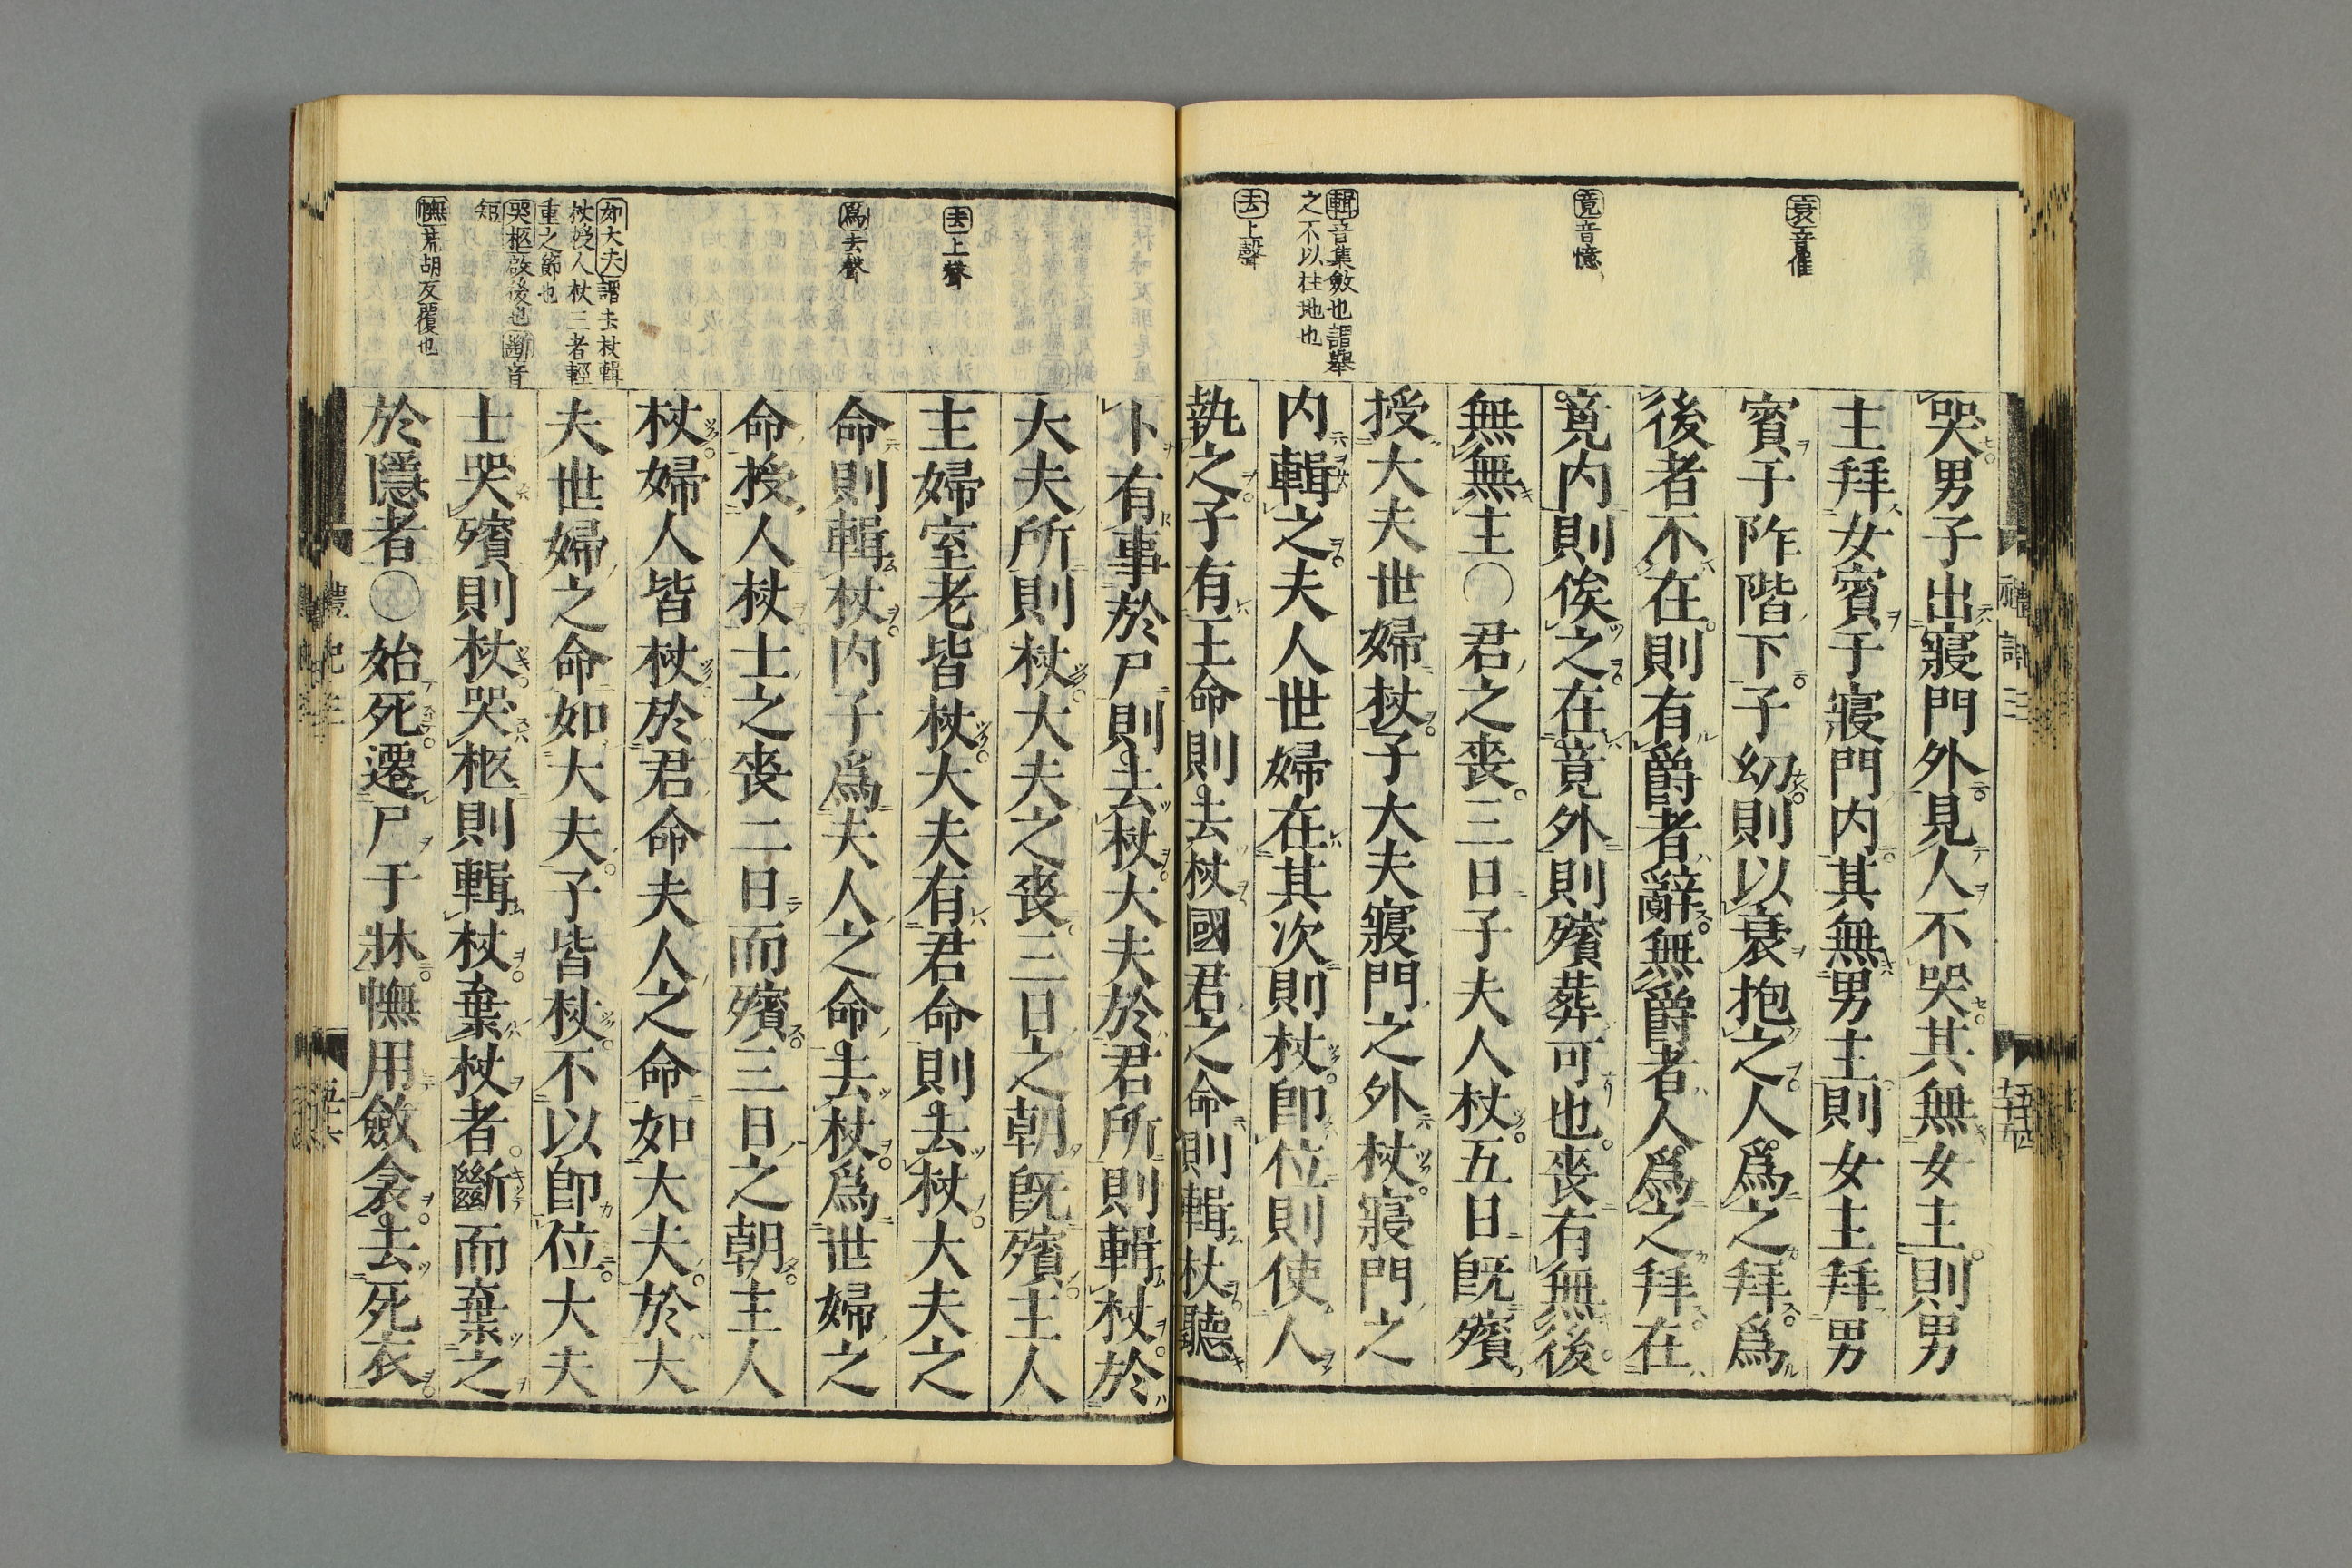 衰音催
竟音憶
輯音集斂也謂舉
之不以柱地也
去上聲
哭男子出寢門外見人不哭其無女主則男
主拜女賓于寢門内其無男主則女主拜男
賓于阼階下子幼則以衰抱之人爲之拜爲
後者不在則有爵者辭無爵者人爲之拜在
竟内則俟之在竟外則殯葬可也喪有無後
無無主○君之喪三日子夫人杖五日既殯
授大夫世婦杖子大夫寢門之外杖寢門之
内輯之夫人世婦在其次則杖卽位則使人
執之子有王命則去杖國君之命則輯杖聽
禮記三
五十四
去上聲
爲去聲
如大夫謂去杖輯
杖授人杖三者輕
重之節也
哭柩啟後也斷音
短
幠荒胡反覆也
卜有事於尸則去杖大夫於君所則輯杖於
大夫所則杖大夫之喪三日之朝既殯主人
主婦室老皆杖大夫有君命則去杖大夫之
命則輯杖内子爲夫人之命去杖爲世婦之
命授人杖士之喪二日而殯三日之朝主人
杖婦人皆杖於君命夫人之命如大夫於大
夫世婦之命如大夫子皆杖不以卽位大夫
士哭殯則杖哭柩則輯杖棄杖者斷而棄之
於隱者○始死遷尸于牀幠用斂衾去死衣
禮記三